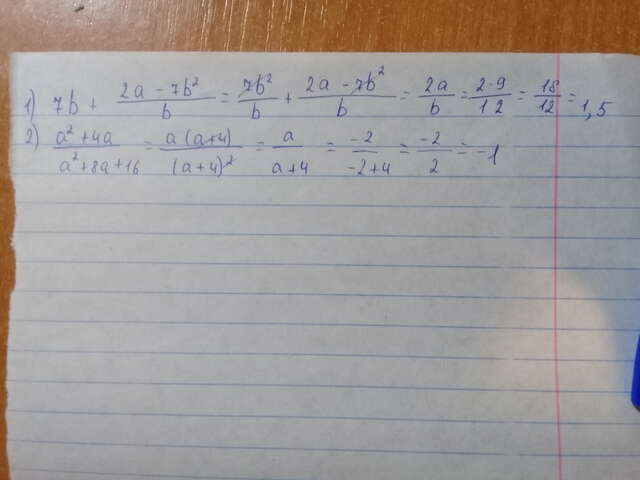 1) 7b + \frac{2a - 7b²}{b} = \frac{7b²}{b} + \frac{2a - 7b²}{b} = \frac{2a}{b} = \frac{2·9}{12} = \frac{18}{12} = 1,5
2) \frac{a² + 4a}{a² + 8a + 16} = \frac{a(a+4)}{(a+4)²} = \frac{a}{a+4} = \frac{-2}{-2+4} = \frac{-2}{2} = -1